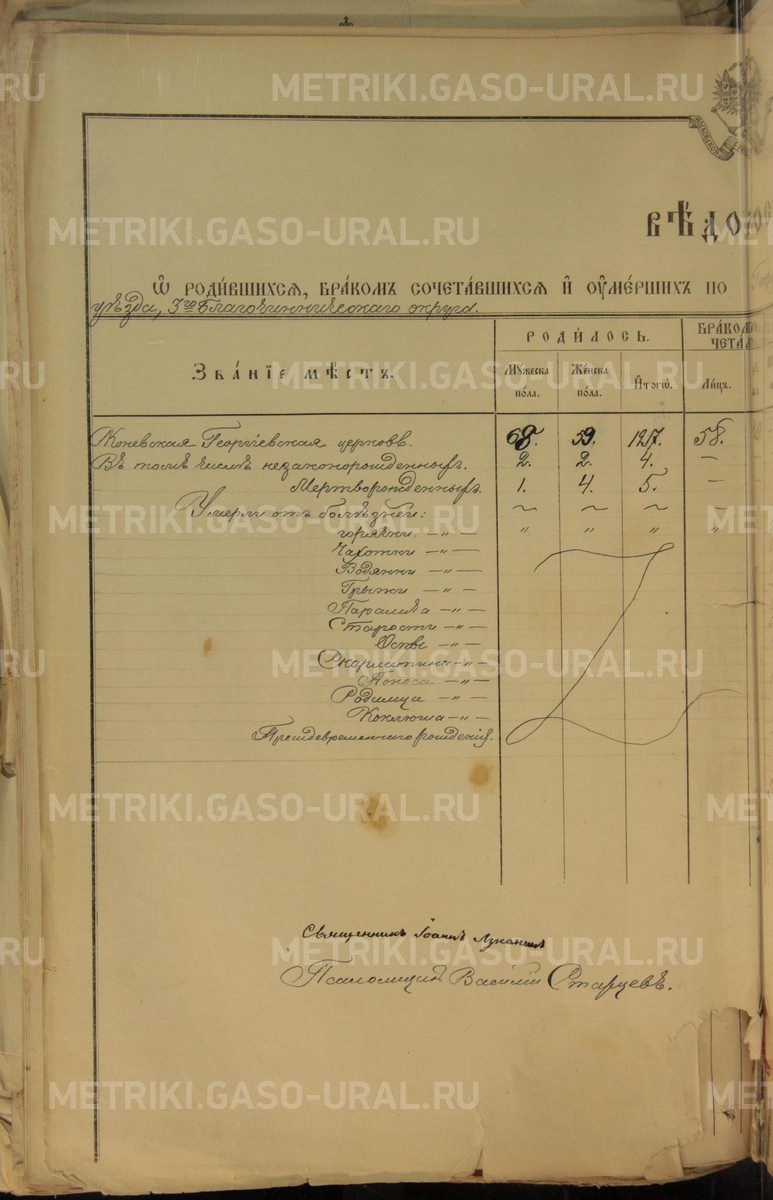 METRIKI.GASO-URAL.RU
ВѢДО
Ѡ РОДИ́ВШИХСѦ, БРА́КОМЪ СОЧЕТА́ВШИХСѦ И҆ ОУ҆МЕ́РШИХЪ ПО
уѣзда, 3го Благочинническаго округа.
Зва́нїе мѣ́стъ.
РОДИ́ЛОСЬ.
БРА́КОМ
ЧЕТА
Мꙋ́жеска по́ла.
Же́нска по́ла.
И҆тогѡ̀.
Ли́цъ.
Коневская Георгіевская церковь. 68. 59. 127. 58.
Въ томъ числѣ незаконорожденныхъ. 2. 2. 4. —
Мертворожденныхъ. 1. 4. 5. —
Умерли отъ болѣзней: ~ ~ ~ –
горячки. — „ — „ „ „ „
Чахотки — „ —
Водянки — „ —
Грыжи — „ —
Паралича — „ —
Старости — „ —
Оспы — „ —
Скарлатина — „ —
Поноса — „ —
Родимца — „ —
Коклюша — „ —
Преждевременнаго рожденія.
Священникъ Іоаннъ
Псаломщикъ Василій Старцевъ.